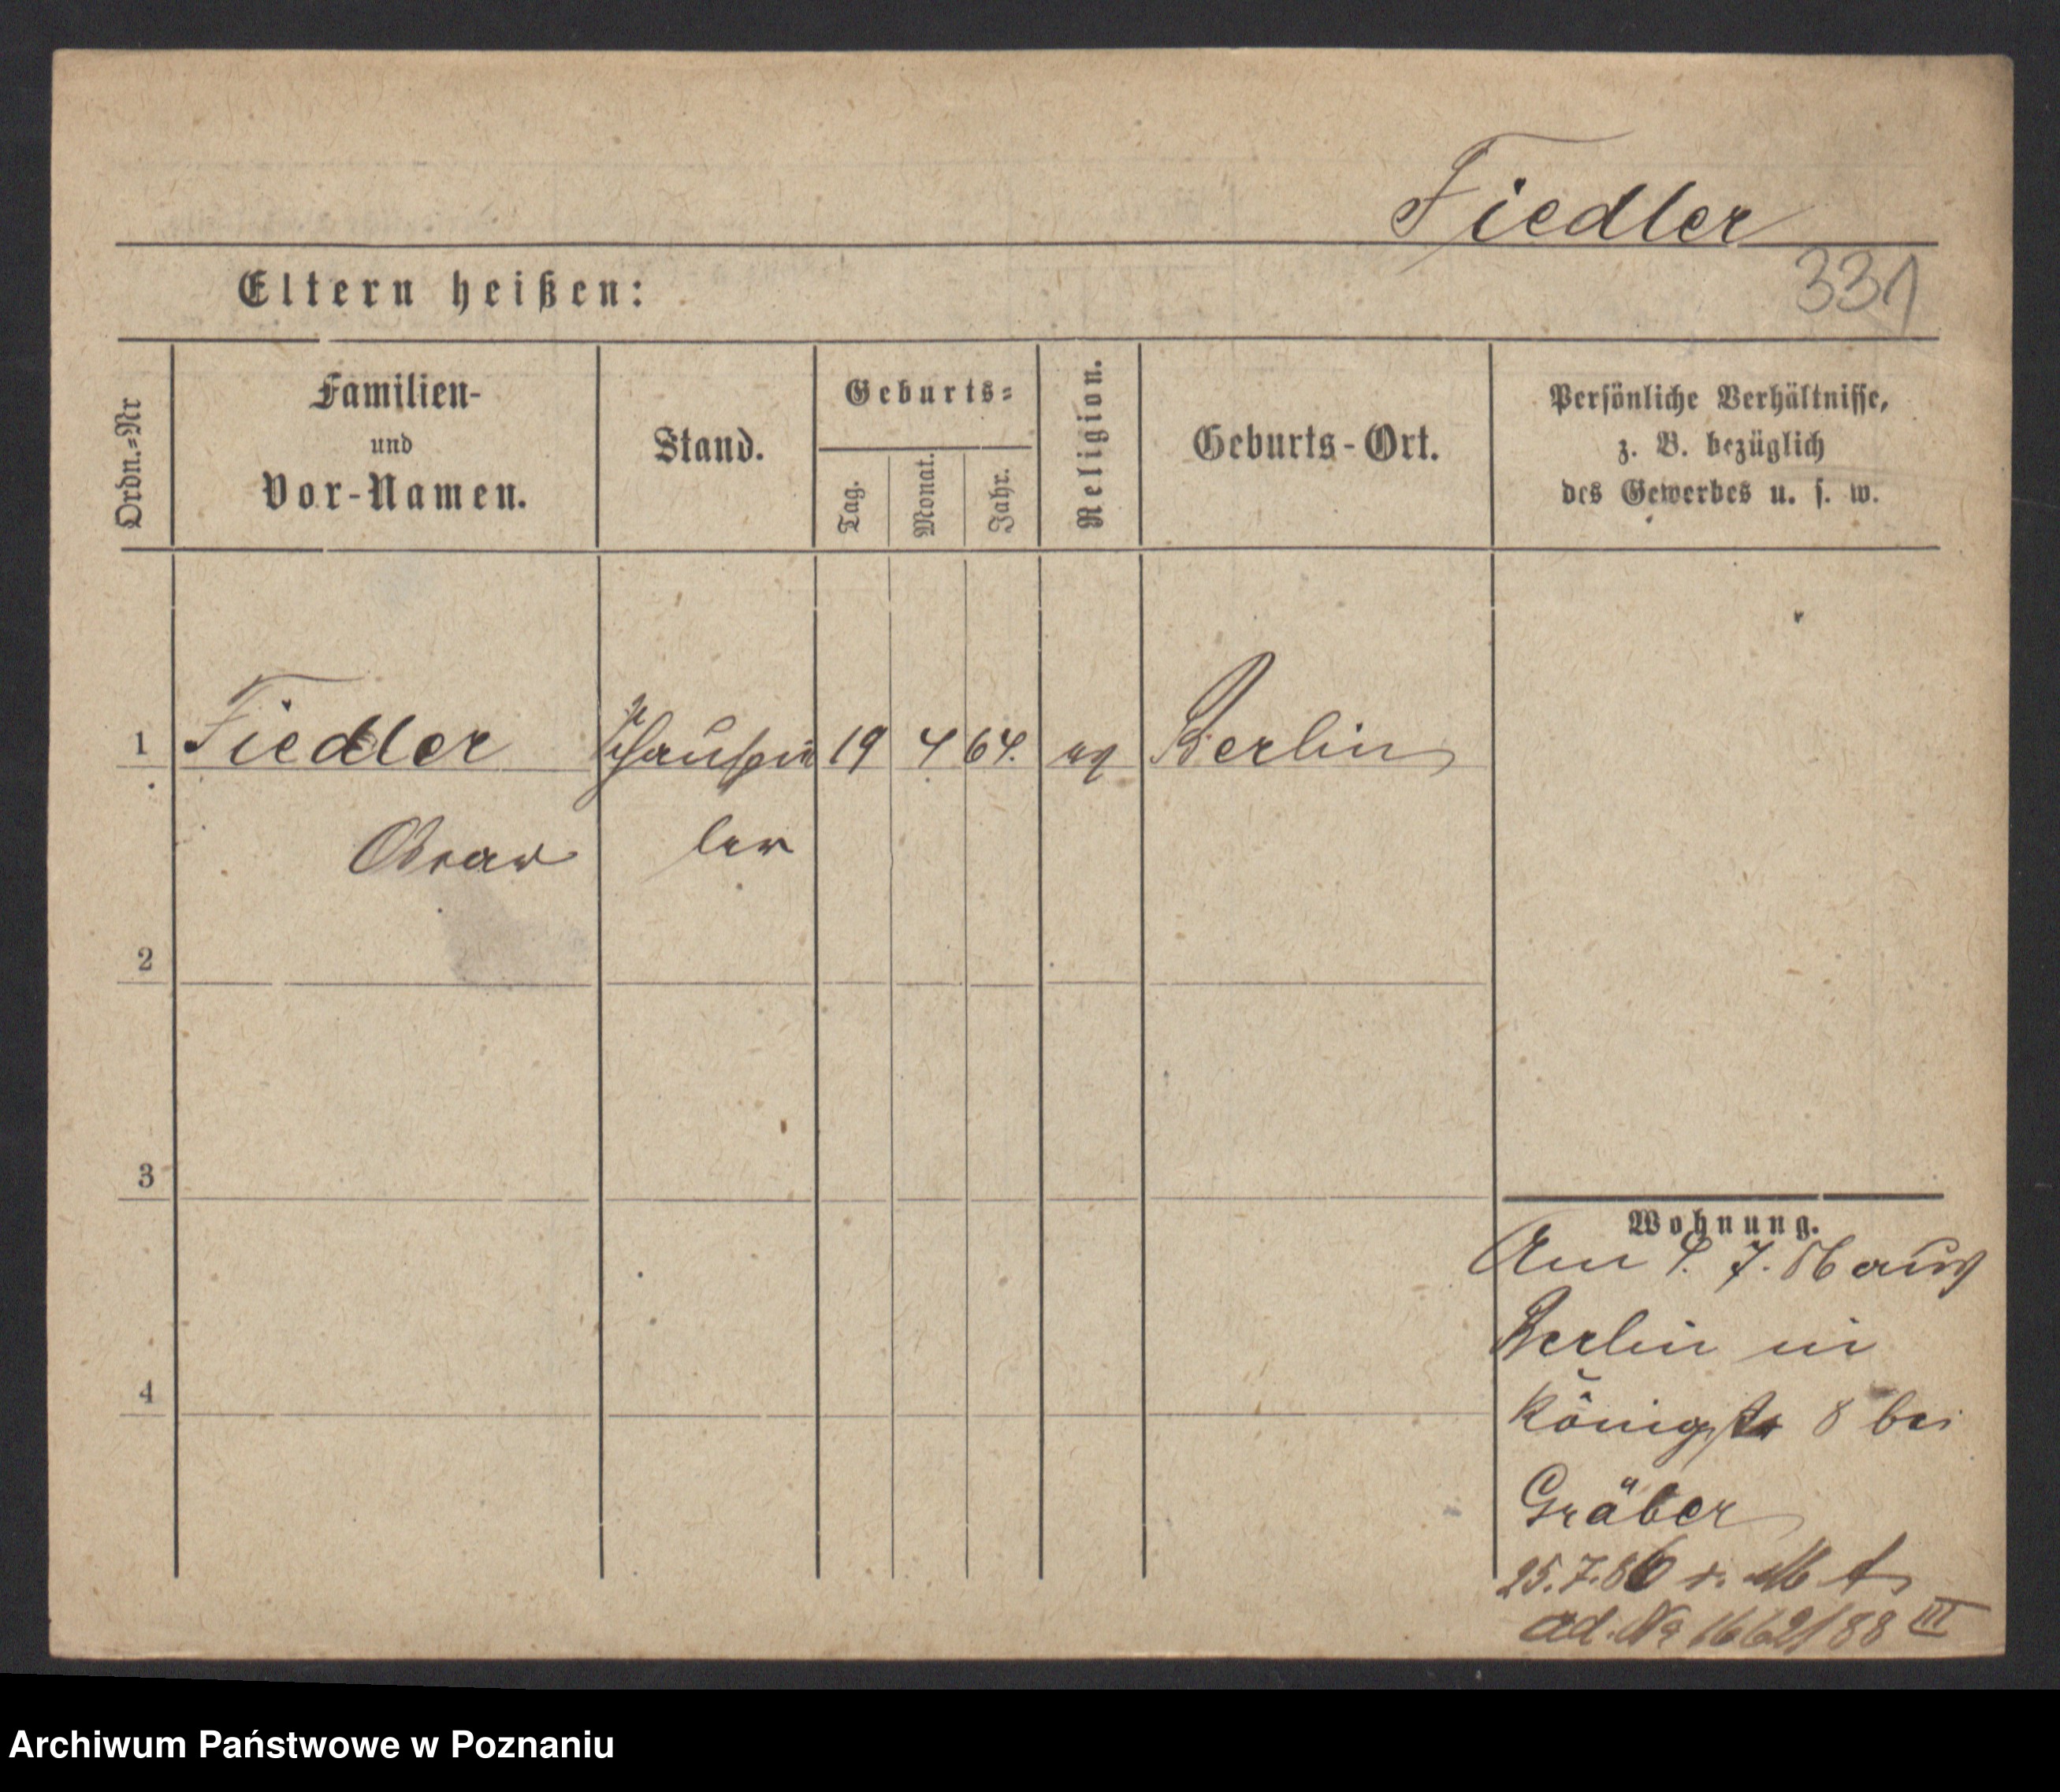 Fiedler
331
Eltern heißen:
Ordn.=Nr
Familien-
und
Vor-Namen.
Stand.
Geburts=
Tag.
Monat.
Jahr.
Religion.
Geburts-Ort.
Persönliche Verhältnisse,
z. B. bezüglich
des Gewerbes u. s. w.
1 Fiedler Schauspie 19 4 64. ev Berlin
ler
2
3
4
Wohnung.
Am 9. 7. 86 aus
Berlin in
Königstr 8 bei
Gräber
25.7.86
ad. No 1662/88 III
Archiwum Państwowe w Poznaniu